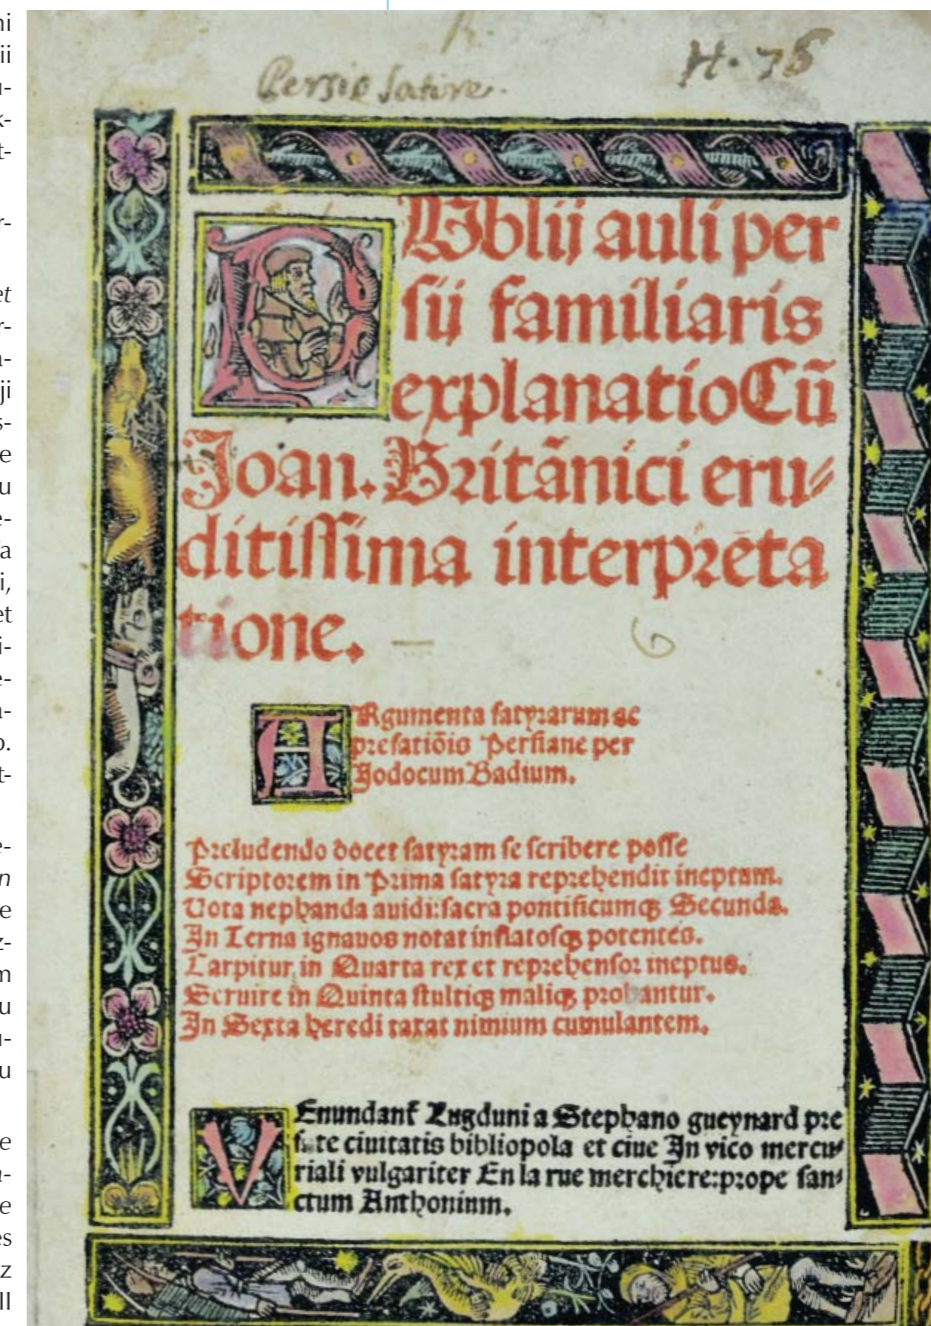 ni
ii
u-
k-
t-
r-
et
r-
a-
ji
s-
e
u
e-
a
i,
et
i-
e-
a-
o.
t-
e-
n
e
z-
m
u
u-
u
e
a-
e
es
z
ll
Persio satire.
H. 75
PUblij auli per
sij familiaris
explanatio Cũ
Joan. Britãnici eru⸗
ditissima interpẽta
tione.
6
ARgumenta satyrarum ac
prefatiõis Persiane per
Jodocum Badium.
Preludendo docet satyram se scribere posse
Scriptorem in Prima satyra reprehendit ineptum.
Vota nephanda auidi: sacra pontificumqꝫ Secunda.
In Terna ignauos notat inflatosqꝫ potentes.
Carpitur in Quarta rex et reprehensor ineptus.
Seruire in Quinta stultiqꝫ maliqꝫ probantur.
In Sexta heredi taxat nimium cumulantem.
VEnundant̃ Lugduni a Stephano gueynard pre
fate ciuitatis bibliopola et ciue In vico mercu⸗
riali vulgariter En la rue merchiere: prope san⸗
ctum Anthonium.